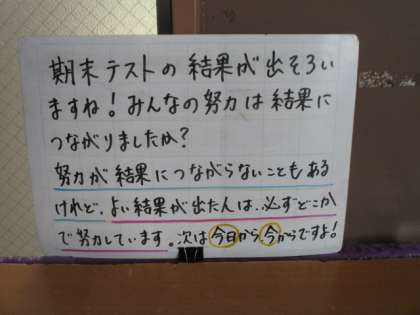 期末テストの結果が出そろい
ますね！みんなの努力は結果に
つながりましたか？
努力が結果につながらないこともある
けれど、よい結果が出た人は、必ずどこか
で努力しています。次は今日から、今からですよ！